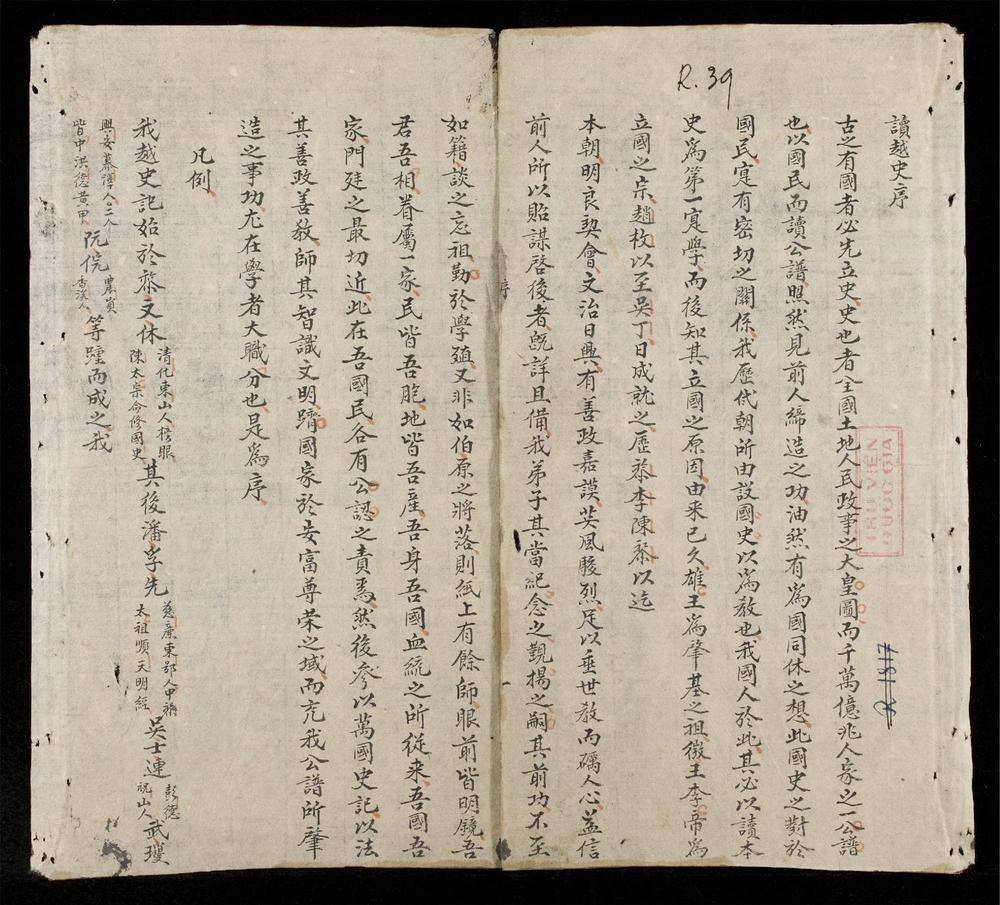 R.39
讀越史序
古之有國者必先立史史也者全國土地人民政事之大皇圖而千萬億兆人家之一公譜
也以國民而讀公譜照然見前人締造之功油然有為國同休之想此國史之對於
國民寔有密切之關係我歷代朝所由設國史以為教也我國人於此其必以讀本
史為第一寔學而後知其立國之原因由来已久雄王為肇基之祖徵王李帝為
立國之宗趙枚以至吳丁日成就之歷黎李陳黎以迄
本朝明良契會文治日興有善政嘉謨英風駿烈足以垂世教而礪人心益信
前人所以貽謀啓後者旣詳且備我弟子其當紀念之觀揚之嗣其前功不至
如籍談之忘祖勤於學殖又非如伯原之將落則紙上有餘師眼前皆明鏡吾
君吾相眷屬一家民皆吾胞地皆吾産吾身吾國血統之所從来吾國吾
家門廷之最切近此在吾國民各有公認之責焉然後參以萬國史記以法
其善政善教師其智識文明躋國家於安富尊荣之域而充我公譜所肇
造之事功尤在學者大職分也是為序
凡例
我越史記始於黎文休
清化東山人榜眼
陳太宗命修國史
其後潘孚先
慈廉東鄂人中
太祖順天明經
吳士連
彰德
祝山人
武瓊
興安慕澤人二人
皆中洪德黄甲
阮侃
農貢
香溪人
等踵而成之我
序
THƯ VIỆN
QUỐC GIA
R-1317